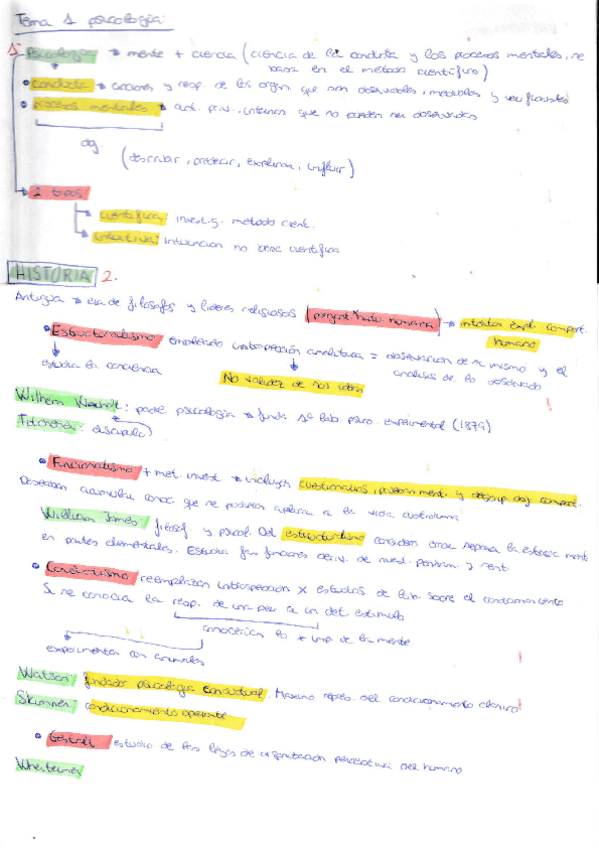 Tema 1 psicología:
1. Psicología → mente + ciencia (ciencia de la conducta y los procesos mentales, se
basa en el método científico)
• conducta → acciones y resp. de los organ. que son observables, medibles y verificables
• procesos mentales → act. priv., internas que no pueden ser observadas
obj.
(describir, predecir, explicar, influir)
2 tipos
científica: investig. método cient.
intuitiva: Intuición no base científica
HISTORIA 2.
Antigua → era de filósofos y líderes religiosos → intentar expl. comport.
humano
• Estructuralismo empleando introspección analítica = observación de si mismo y el
estudia la conciencia
análisis de lo observado
No validez de sus ideas
Wilhem Wundt: padre psicología → funda 1er lab. psico. experimental (1879)
Titchener: discípulo
• Funcionalismo + met. invest → incluyen cuestionarios, y descrip. obj. comport.
Deseaban acumular conoc. que se pudieran aplicar a la vida cotidiana
William James: filósof. y psicol. Del estructuralismo consideró error separar la ment
en partes elementales. Estudia las funciones deriv. de
• Conductismo reemplazan introspección x estudios de lab. sobre el condicionamiento
Si se conocía la resp. de un per a un det. estímulo
conocerían lo + imp. de la mente.
experimentar con animales
Watson: fundador psicología conductual. Máximo repres. del condicionamiento clásico
Skinner: condicionamiento operante
• Gestalt estudio de las leyes de organización perceptiva del humano